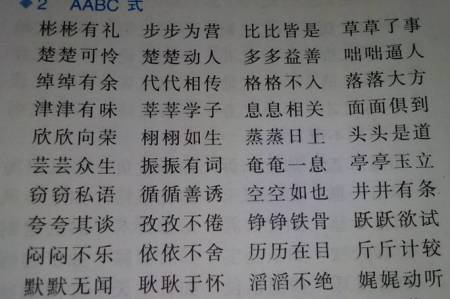 2 AABC 式
彬彬有礼 步步为营 比比皆是 草草了事
楚楚可怜 楚楚动人 多多益善 咄咄逼人
绰绰有余 代代相传 格格不入 落落大方
津津有味 莘莘学子 息息相关 面面俱到
欣欣向荣 栩栩如生 蒸蒸日上 头头是道
芸芸众生 振振有词 奄奄一息 亭亭玉立
窃窃私语 循循善诱 空空如也 井井有条
夸夸其谈 孜孜不倦 铮铮铁骨 跃跃欲试
闷闷不乐 依依不舍 历历在目 斤斤计较
默默无闻 耿耿于怀 滔滔不绝 娓娓动听